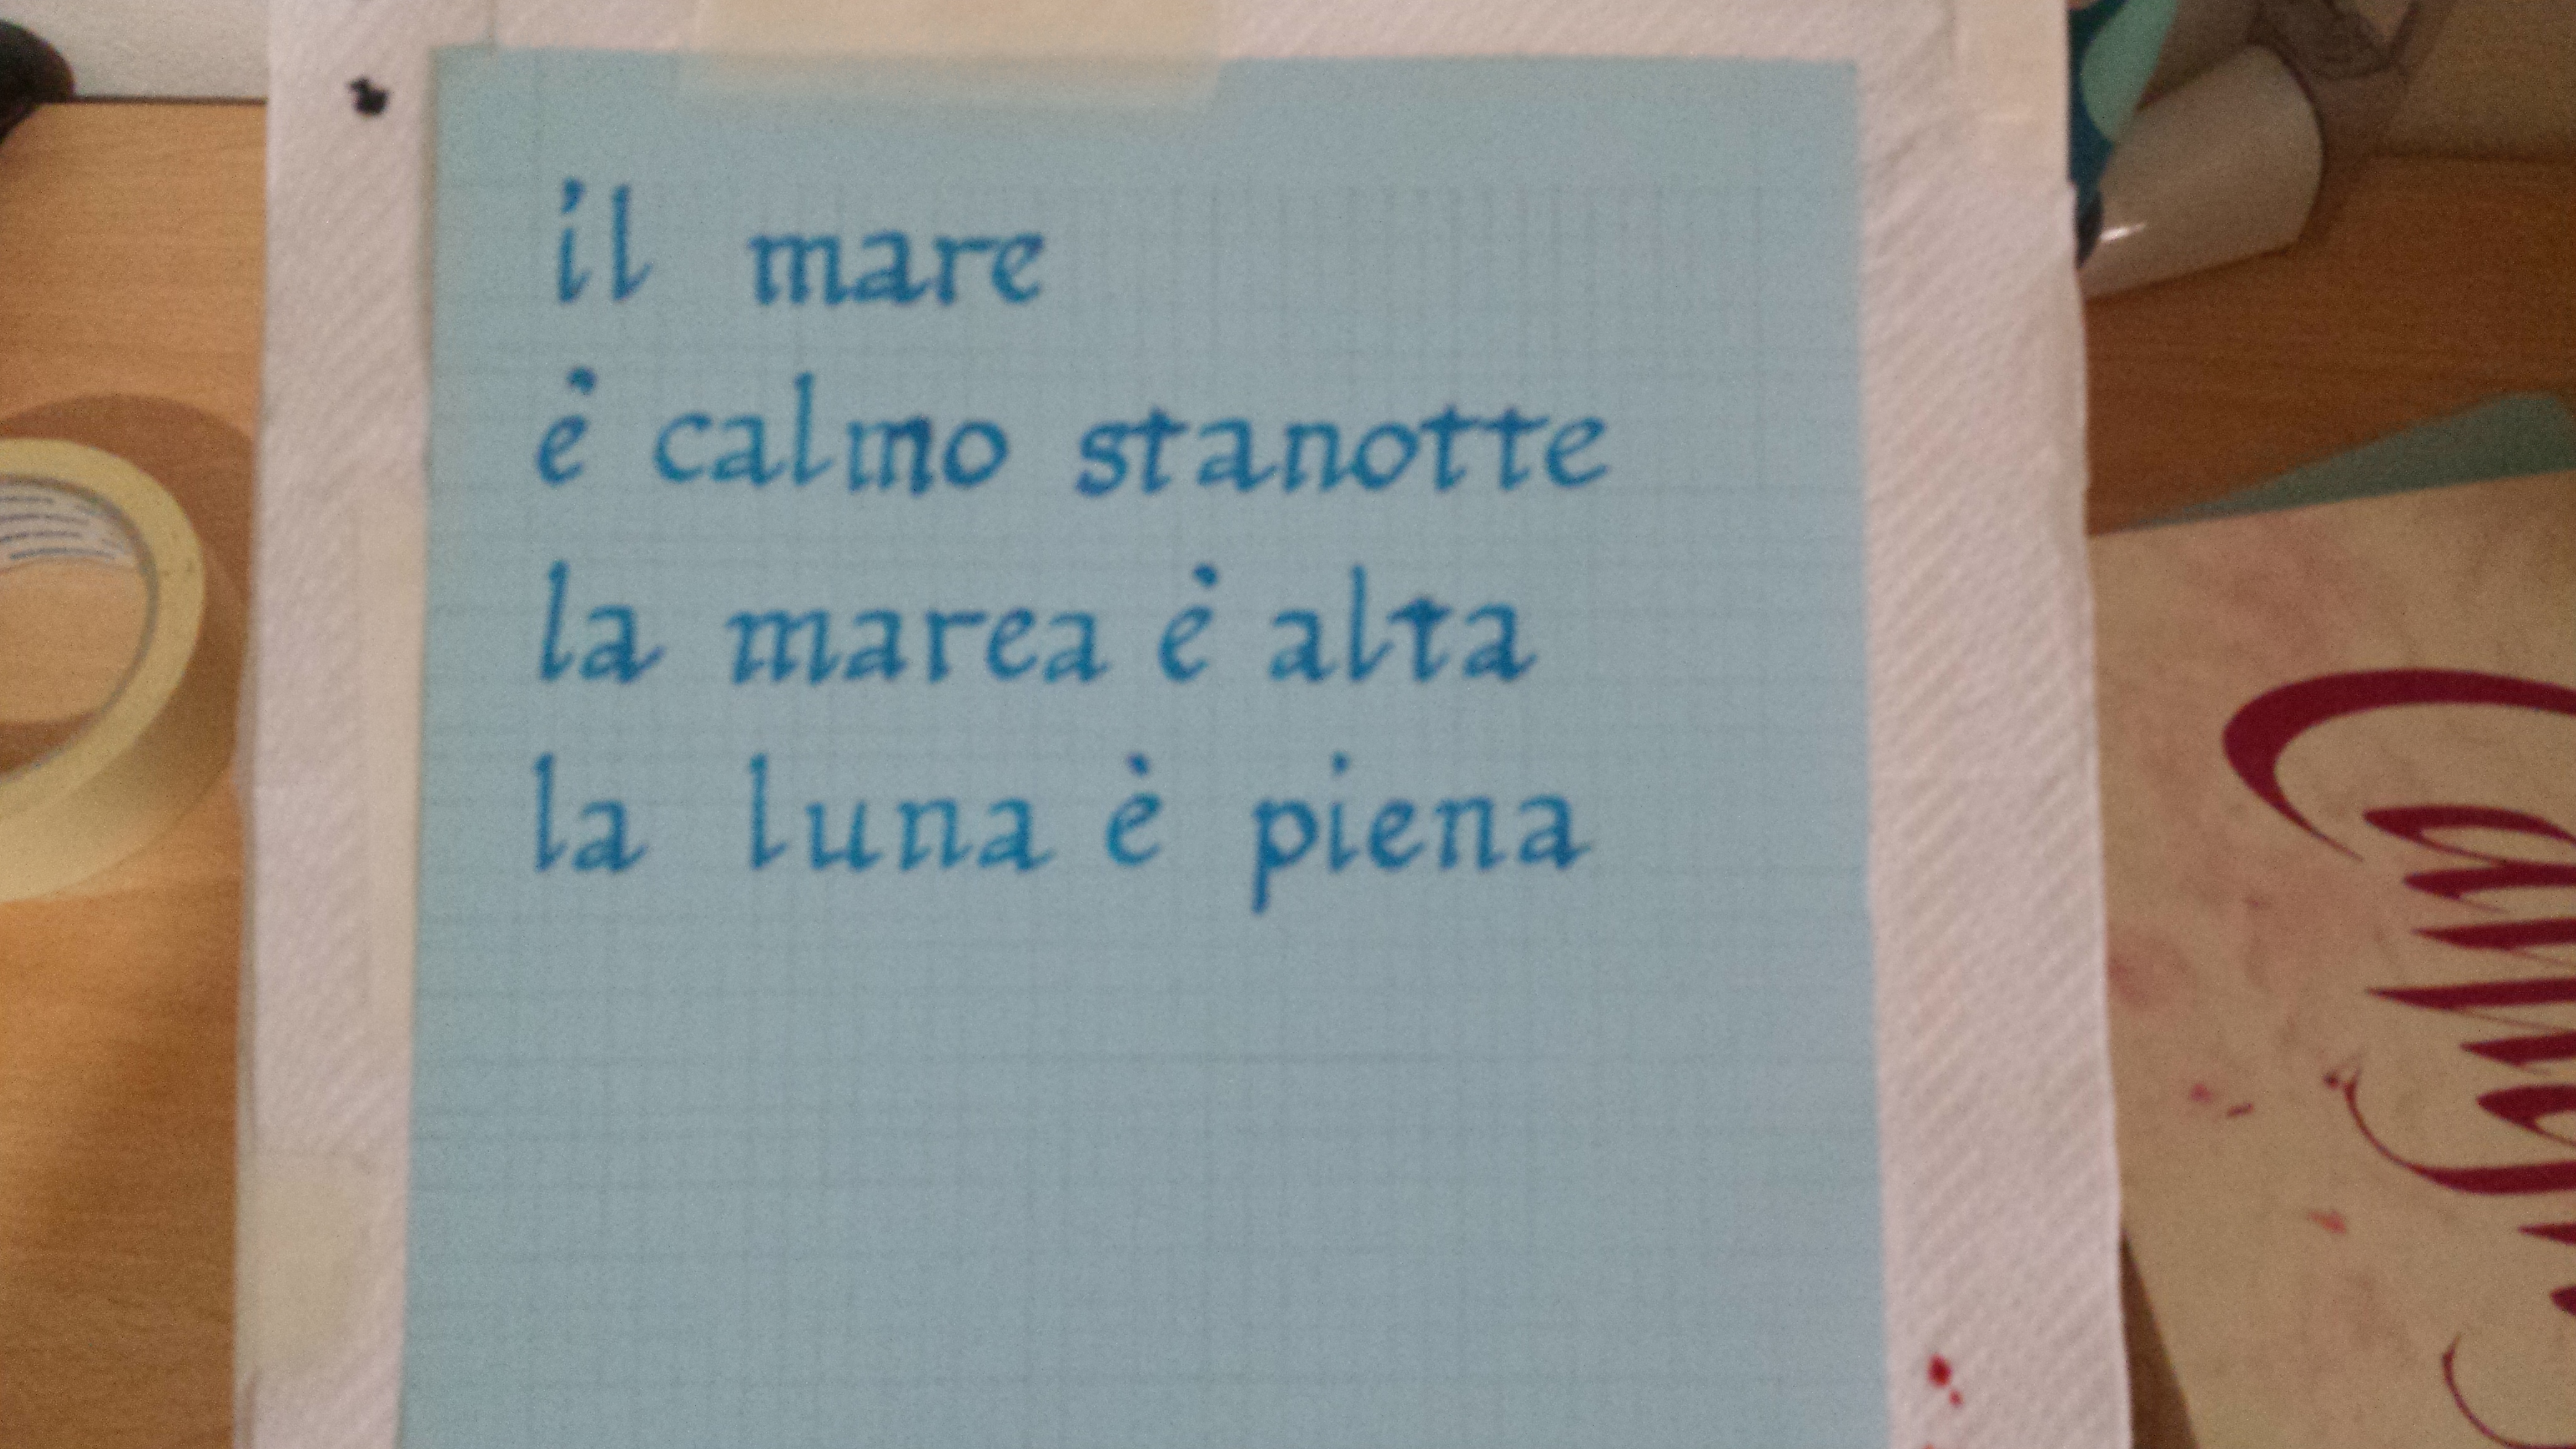 il mare
è calmo stanotte
la marea è alta
la luna è piena